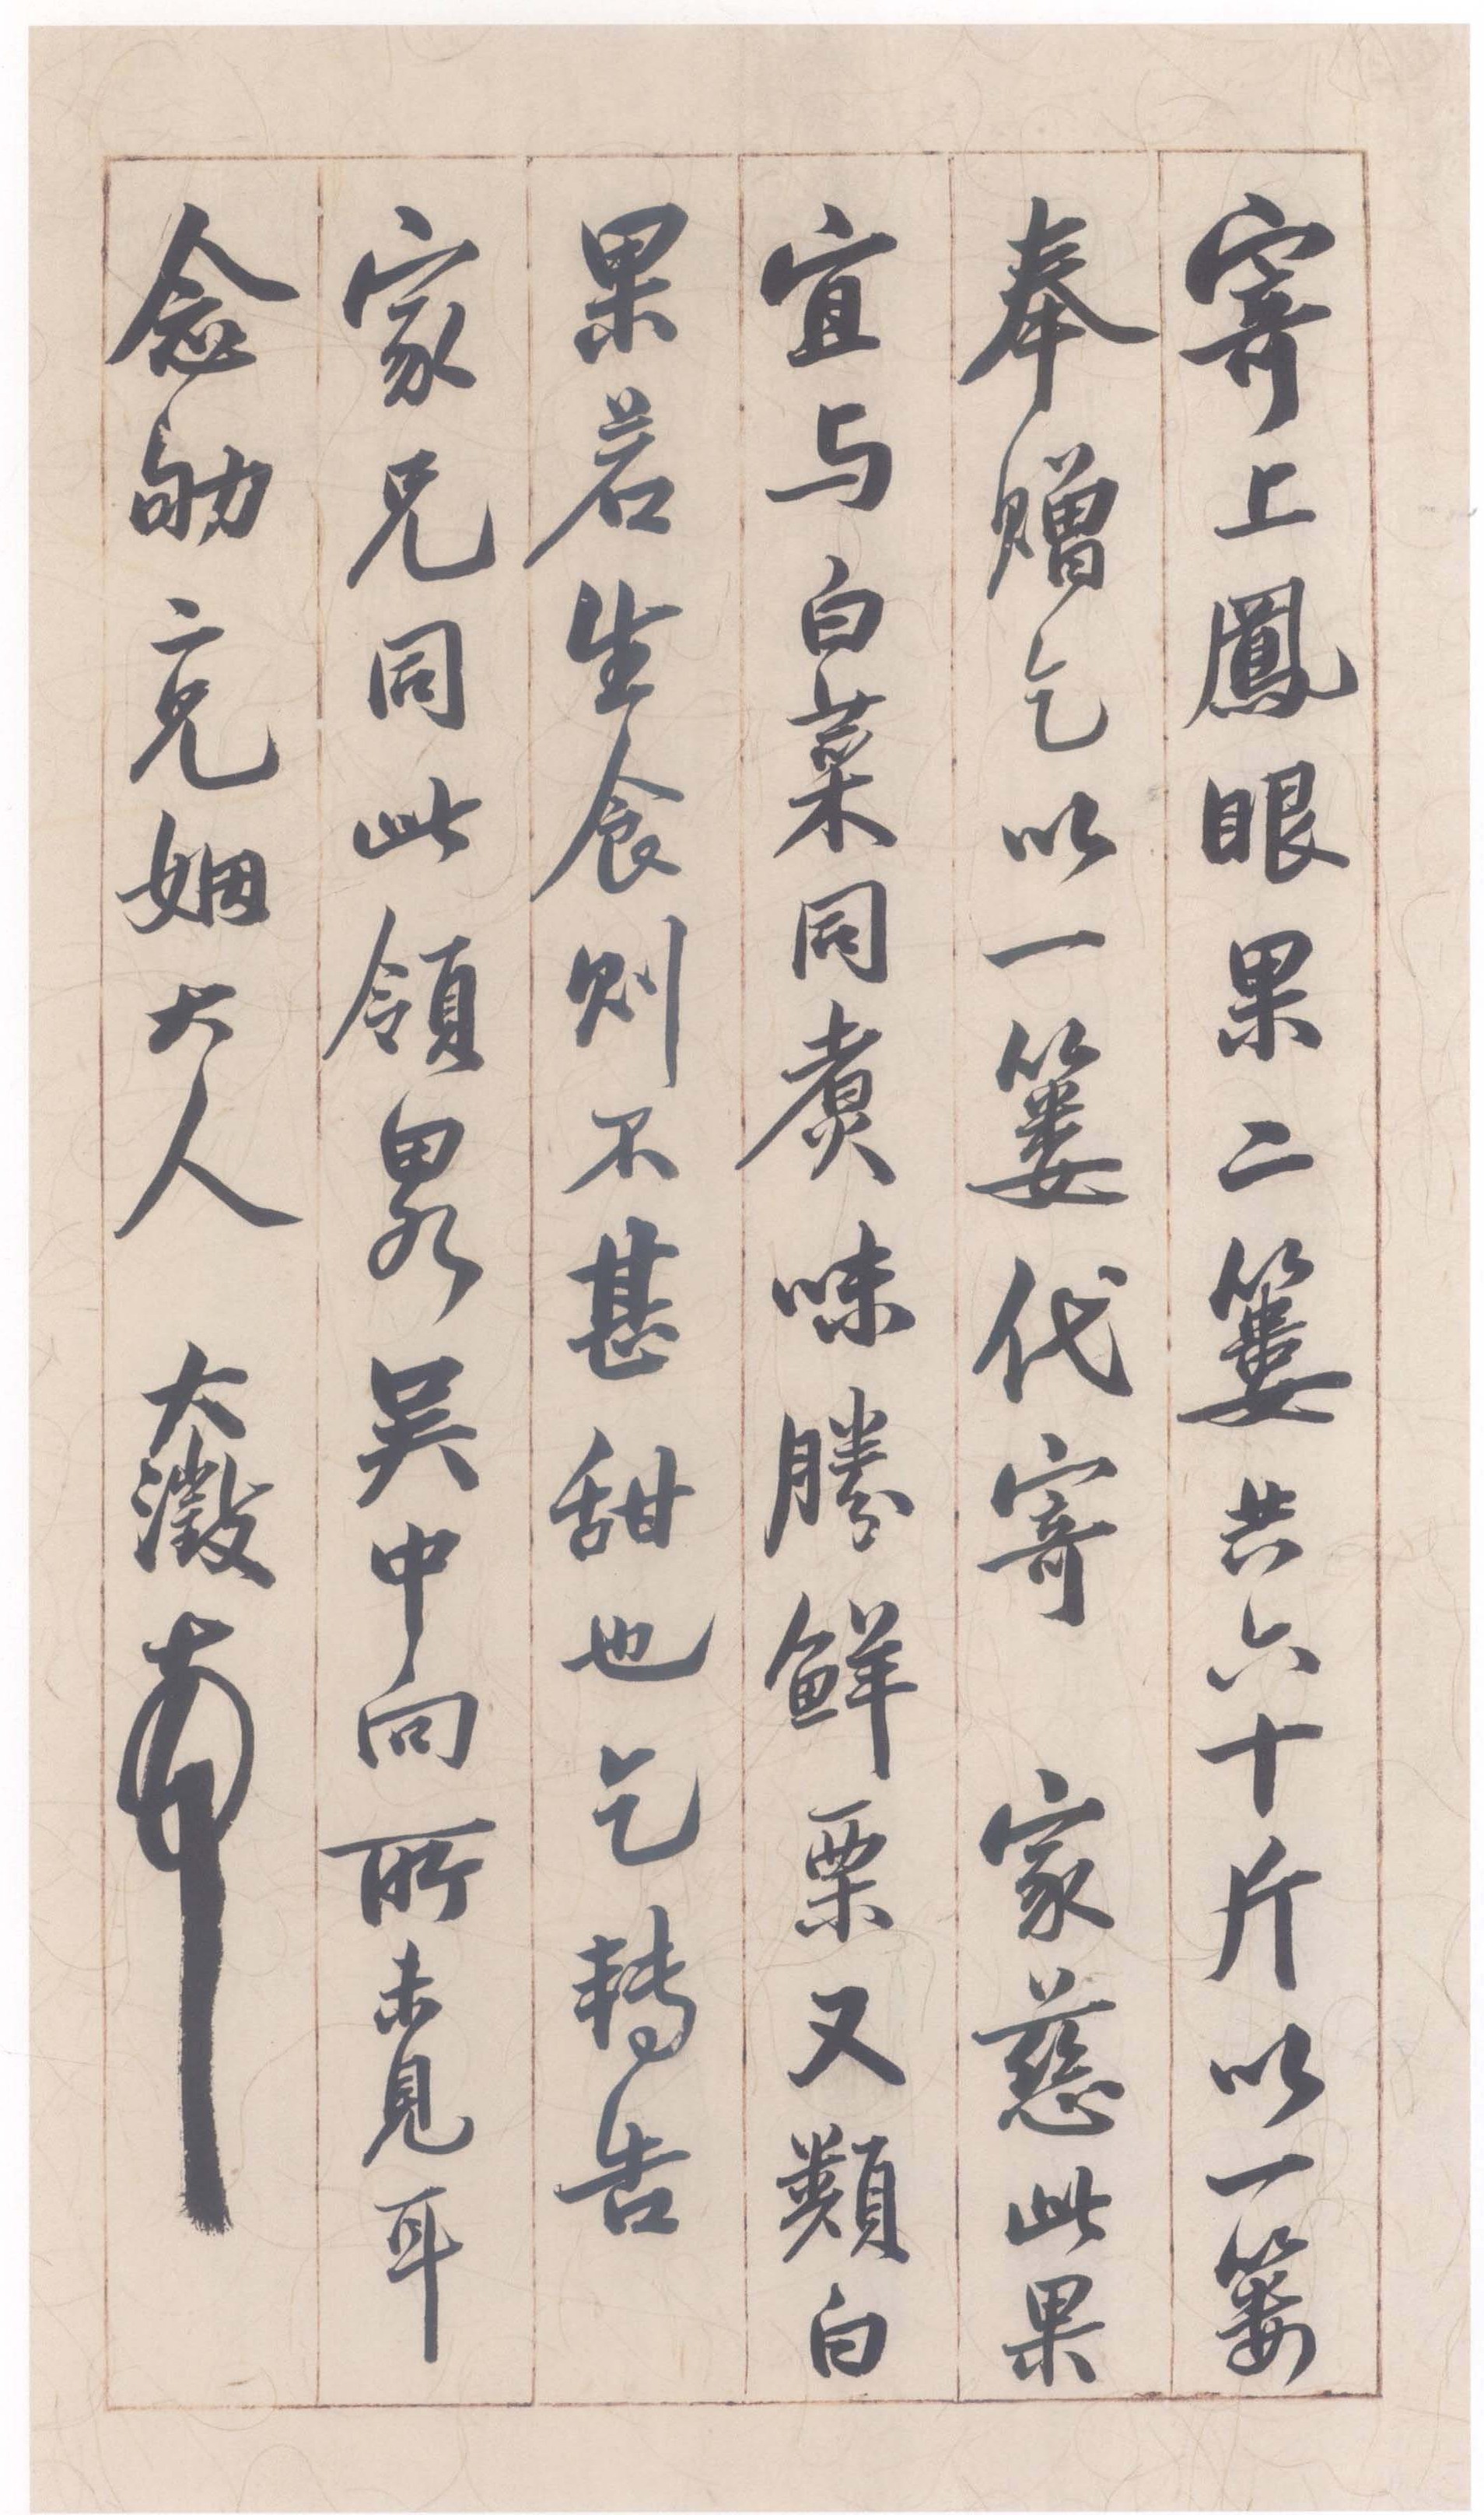 寄上鳳眼果二簍共六十斤以一簍
奉贈乞以一簍代寄 家慈此果
宜与白菜同煑味勝鮮栗又類白
果若生食則不甚甜也乞轉告
家兄同此領畧吳中向所未見耳
念劬二兄姻大人 大澂